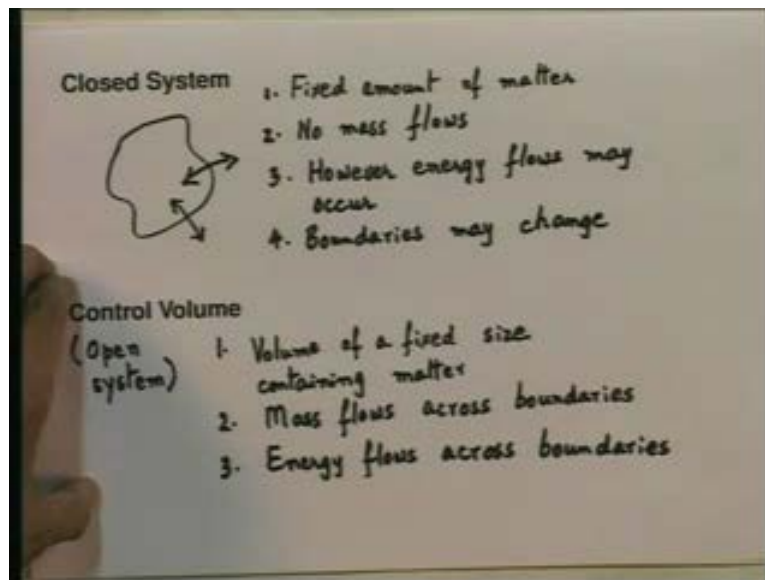 Closed System
1. Fixed amount of matter
2. No mass flows
3. However energy flows may
occur
4. Boundaries may change
Control Volume
(Open
system)
1. Volume of a fixed size
containing matter
2. Mass flows across boundaries
3. Energy flows across boundaries